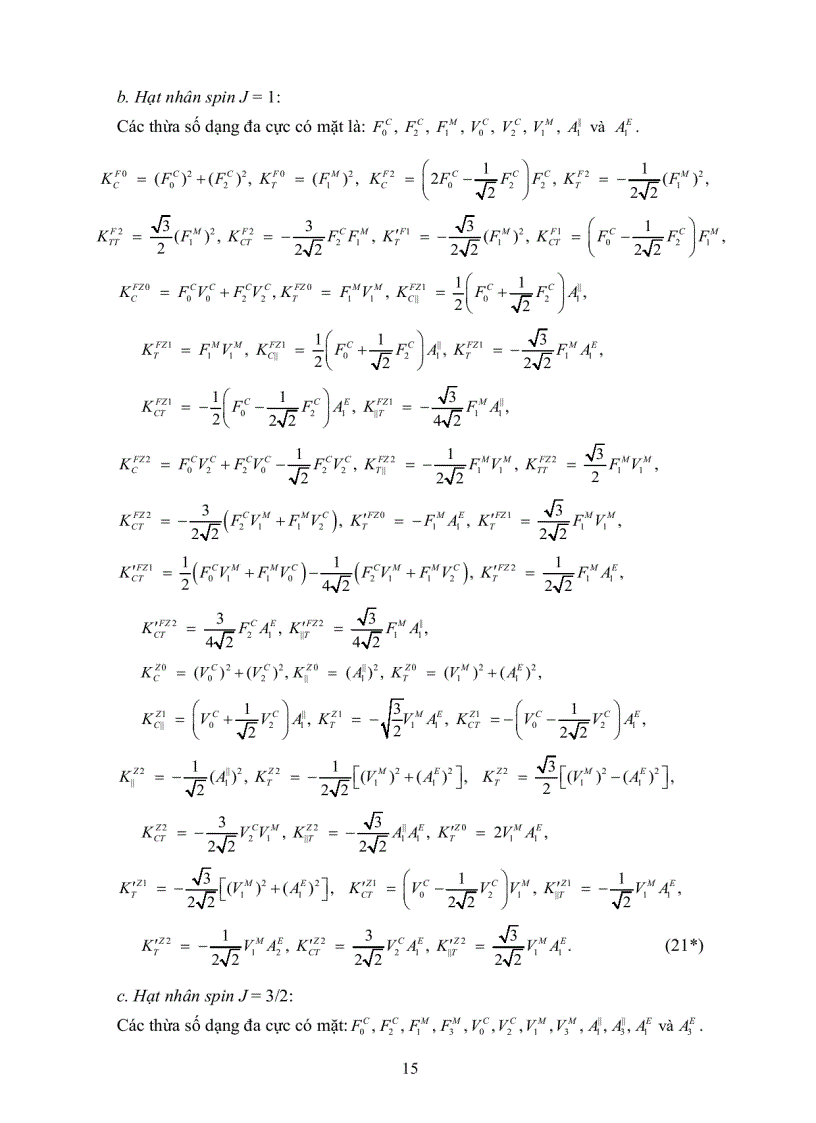 b. Hạt nhân spin J = 1:
Các thừa số dạng đa cực có mặt là: F_0^C, F_2^C, F_1^M, V_0^C, V_2^C, V_1^M, A_1^∥ và A_1^E.
K_C^{F0} = (F_0^C)^2 + (F_2^C)^2, K_T^{F0} = (F_1^M)^2, K_C^{F2} = (2F_0^C − 1/√2 F_2^C)F_2^C, K_T^{F2} = − 1/(2√2) (F_1^M)^2,
K_{TT}^{F2} = √3/2 (F_1^M)^2, K_{CT}^{F2} = − 3/(2√2) F_2^C F_1^M, K′_T^{F1} = − √3/(2√2) (F_1^M)^2, K_{CT}^{F1} = (F_0^C − 1/(2√2) F_2^C)F_1^M,
K_C^{FZ0} = F_0^C V_0^C + F_2^C V_2^C, K_T^{FZ0} = F_1^M V_1^M, K_{C∥}^{FZ1} = 1/2 (F_0^C + 1/√2 F_2^C)A_1^∥,
K_T^{FZ1} = F_1^M V_1^M, K_{C∥}^{FZ1} = 1/2 (F_0^C + 1/√2 F_2^C)A_1^∥, K_T^{FZ1} = − √3/(2√2) F_1^M A_1^E,
K_{CT}^{FZ1} = − 1/2 (F_0^C − 1/(2√2) F_2^C)A_1^E, K_{∥T}^{FZ1} = − √3/(4√2) F_1^M A_1^∥,
K_C^{FZ2} = F_0^C V_2^C + F_2^C V_0^C − 1/√2 F_2^C V_2^C, K_{T∥}^{FZ2} = − 1/(2√2) F_1^M V_1^M, K_{TT}^{FZ2} = √3/2 F_1^M V_1^M,
K_{CT}^{FZ2} = − 3/(2√2) (F_2^C V_1^M + F_1^M V_2^C), K′_T^{FZ0} = −F_1^M A_1^E, K′_T^{FZ1} = √3/(2√2) F_1^M V_1^M,
K′_{CT}^{FZ1} = 1/2 (F_0^C V_1^M + F_1^M V_0^C) − 1/(4√2) (F_2^C V_1^M + F_1^M V_2^C), K′_T^{FZ2} = 1/(2√2) F_1^M A_1^E,
K′_{CT}^{FZ2} = 3/(4√2) F_2^C A_1^E, K′_{∥T}^{FZ2} = √3/(4√2) F_1^M A_1^∥,
K_C^{Z0} = (V_0^C)^2 + (V_2^C)^2, K_∥^{Z0} = (A_1^∥)^2, K_T^{Z0} = (V_1^M)^2 + (A_1^E)^2,
K_{C∥}^{Z1} = (V_0^C + 1/√2 V_2^C)A_1^∥, K_T^{Z1} = − √(3/2) V_1^M A_1^E, K_{CT}^{Z1} = −(V_0^C − 1/(2√2) V_2^C)A_1^E,
K_∥^{Z2} = − 1/√2 (A_1^∥)^2, K_T^{Z2} = − 1/(2√2) [(V_1^M)^2 + (A_1^E)^2], K_T^{Z2} = √3/2 [(V_1^M)^2 − (A_1^E)^2],
K_{CT}^{Z2} = − 3/(2√2) V_2^C V_1^M, K_{∥T}^{Z2} = − √3/(2√2) A_1^∥ A_1^E, K′_T^{Z0} = 2V_1^M A_1^E,
K′_T^{Z1} = − √3/(2√2) [(V_1^M)^2 + (A_1^E)^2], K′_{CT}^{Z1} = (V_0^C − 1/(2√2) V_2^C)V_1^M, K′_{∥T}^{Z1} = − 1/√2 V_1^M A_1^E,
K′_T^{Z2} = − 1/(2√2) V_1^M A_2^E, K′_{CT}^{Z2} = 3/(2√2) V_2^C A_1^E, K′_{∥T}^{Z2} = √3/(2√2) V_1^M A_1^E. (21*)
c. Hạt nhân spin J = 3/2:
Các thừa số dạng đa cực có mặt: F_0^C, F_2^C, F_1^M, F_3^M, V_0^C, V_2^C, V_1^M, V_3^M, A_1^∥, A_3^∥, A_1^E và A_3^E.
15